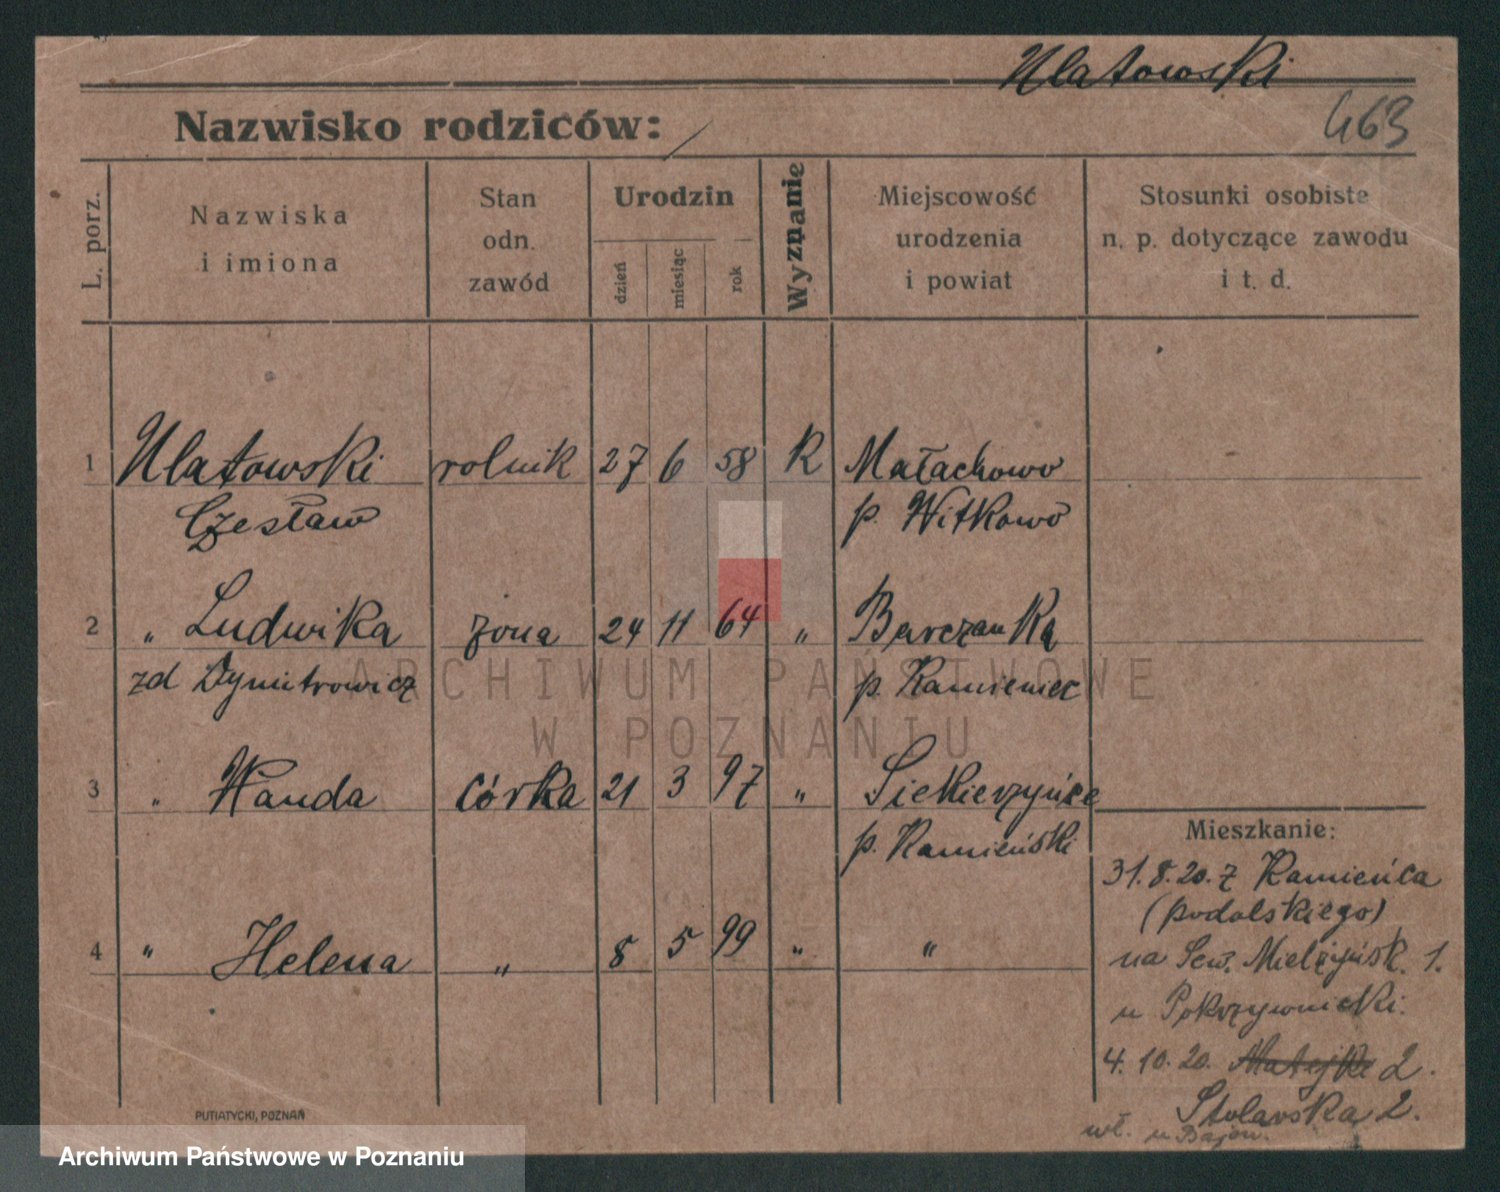 Ulatowski
463
Nazwisko rodziców:
L. porz.
Nazwiska
i imiona
Stan
odn.
zawód
Urodzin
dzień
miesiąc
rok
Wyznanie
Miejscowość
urodzenia
i powiat
Stosunki osobiste
n. p. dotyczące zawodu
i t. d.
1 Ulatowski rolnik 27 6 58 R Małachowo
Czesław p. Witkowo
2 " Ludwika żona 24 11 64 " Barczanka
zd Dymitrowicz p. Kamieniec
3 " Wanda córka 21 3 97 " Siekierzyńce
p. Kamieński
4 " Helena " 8 5 99 " "
Mieszkanie:
31.8.20. z Kamieńca
(podolskiego)
na Sew. Mielżyńsk. 1.
u Pokrzywnicki.
4.10.20. Matejki 2.
Stolarska 2.
wł. u
PUTIATYCKI, POZNAŃ
ARCHIWUM PAŃSTWOWE
W POZNANIU
Archiwum Państwowe w Poznaniu